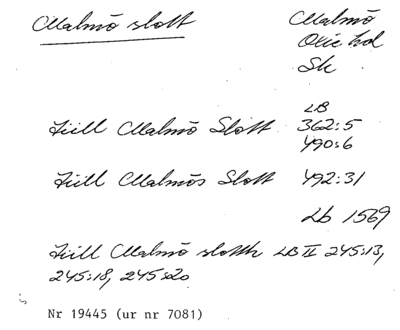 Malmö slott
Malmö
Oxie hd
Sk
LB
362:5
Till Malmö Slott
490:6
Till Malmös Slott 492:31
Lb 1569
Till Malmö slotth LB II 245:13,
245:18, 245:20
Nr 19445 (ur nr 7081)